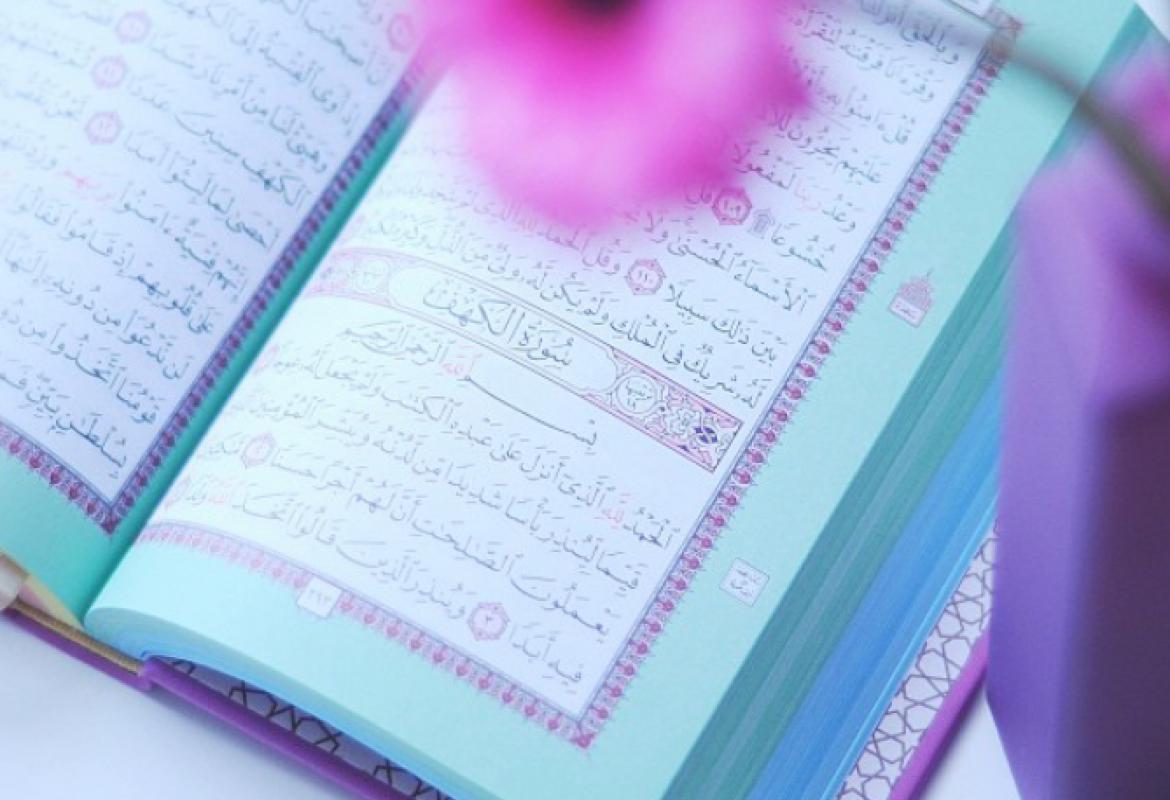 وَبِالْحَقِّ أَنزَلْ
وَقُرْءَانًا فَرَقْنَٰهُ لِتَقْرَأَ
قُلْ ءَامِنُوا۟ بِهِ
عَلَيْهِمْ يَخِرُّونَ لِلْأَ
وَعْدُ رَبِّنَا لَمَفْعُولًا
خُشُوعًا ۩ ١٠٩ قُلِ
ٱلْأَسْمَآءُ ٱلْحُسْنَىٰ وَلَا
بَيْنَ ذَٰلِكَ سَبِيلًا ١١٠ وَقُلِ ٱلْحَمْدُ لِلَّهِ ٱلَّذِى
لَّهُۥ شَرِيكٌ فِى ٱلْمُلْكِ وَلَمْ يَكُن لَّهُۥ وَلِىٌّ مِّنَ ٱلذُّلِّ وَكَبِّرْهُ
سُورَةُ الْكَهْفِ
بِسْمِ ٱللَّهِ ٱلرَّحْمَٰنِ ٱلرَّحِيمِ
ٱلْحَمْدُ لِلَّهِ ٱلَّذِىٓ أَنزَلَ عَلَىٰ عَبْدِهِ ٱلْكِتَٰبَ وَلَمْ يَجْعَل لَّهُۥ
قَيِّمًا لِّيُنذِرَ بَأْسًا شَدِيدًا مِّن لَّدُنْهُ وَيُبَشِّرَ ٱلْمُؤْمِنِينَ
يَعْمَلُونَ ٱلصَّٰلِحَٰتِ أَنَّ لَهُمْ أَجْرًا حَسَنًا ٢ مَّٰكِثِينَ
فِيهِ أَبَدًا ٣ وَيُنذِرَ ٱلَّذِينَ قَالُوا۟ ٱتَّخَذَ ٱللَّهُ وَلَدًا
٢٩٣
إِذْ أَوَى ٱلْفِتْيَةُ إِلَى
وَهَيِّئْ لَنَا مِنْ أَمْرِنَا رَشَدًا ١٠
ٱلْكَهْفِ سِنِينَ عَدَدًا ١١
أَحْصَىٰ لِمَا لَبِثُوٓا۟ أَمَدًا ١٢ نَّحْنُ نَقُصُّ
إِنَّهُمْ فِتْيَةٌ ءَامَنُوا۟ بِرَبِّهِمْ
عَلَىٰ قُلُوبِهِمْ إِذْ قَامُوا۟ فَقَالُوا۟
لَن نَّدْعُوَا۟ مِن دُونِهِۦٓ إِلَٰهًا
قَوْمُنَا ٱتَّخَذُوا۟ مِن
بِسُلْطَٰنٍۭ بَيِّنٍ